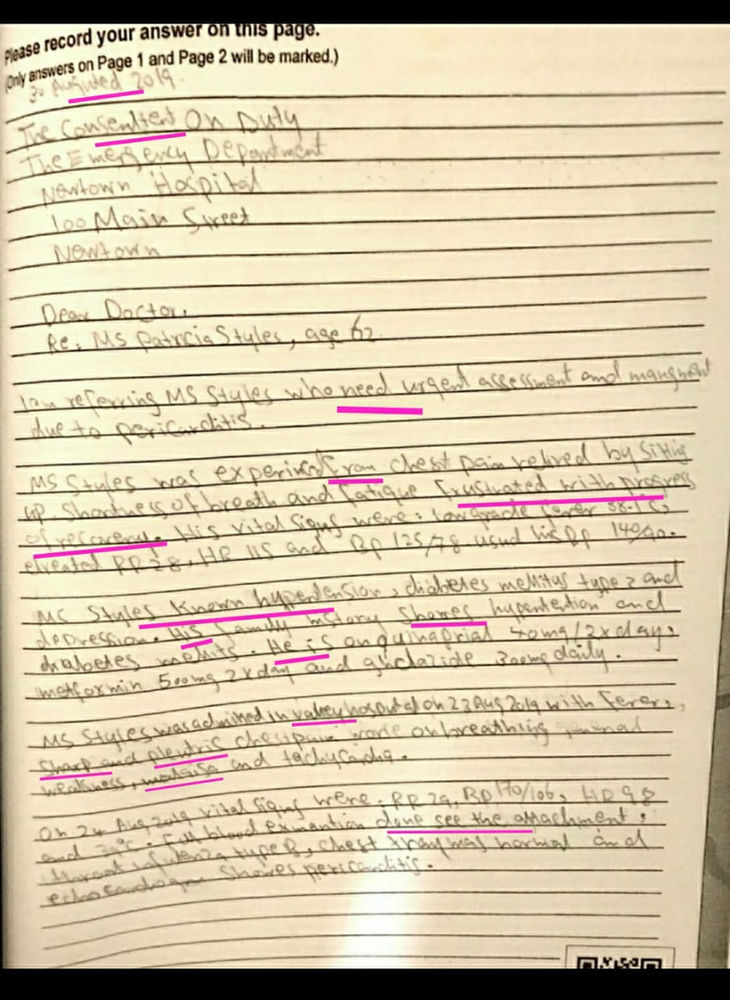 Please record your answer on this page.
(Only answers on Page 1 and Page 2 will be marked.)
30 Augusted 2019.
The Consenltent On Duty
The Emergency Department
Newtown Hospital
100 Main Street
Newtown
Dear Doctor,
Re: MS Patricia Styles, age 62
I am referring MS Styles who need urgent assessment and mangment
due to pericarditis.
MS Styles was from chest pain relived by sitting
up shortness of breath and fatigue frustrated with progress
of recovery. His vital signs were: low grade fever
elevated RR 28, HR 115 and Bp 125/78 usual his Bp 140/90.
MS Styles known hypertension, diabetes mellitus type 2 and
depression. His family history shares hypertention and
diabetes melits. He is on quinaprial 40mg/2xday,
metformin 500mg 2xday and gliclazide 300mg daily.
MS Styles was admitted in valley hospital on 23 Aug 2019 with fever,
sharp and pleutris chest pain worse on breathing general
weakness, malaise and tachycardia.
On 24 Aug 2019 vital signs were: RR 29, BP 170/106, HR 98
and 39°C. Full blood exmantion done see the attachment,
throat type B, chest xray was normal and
shares pericarditis.